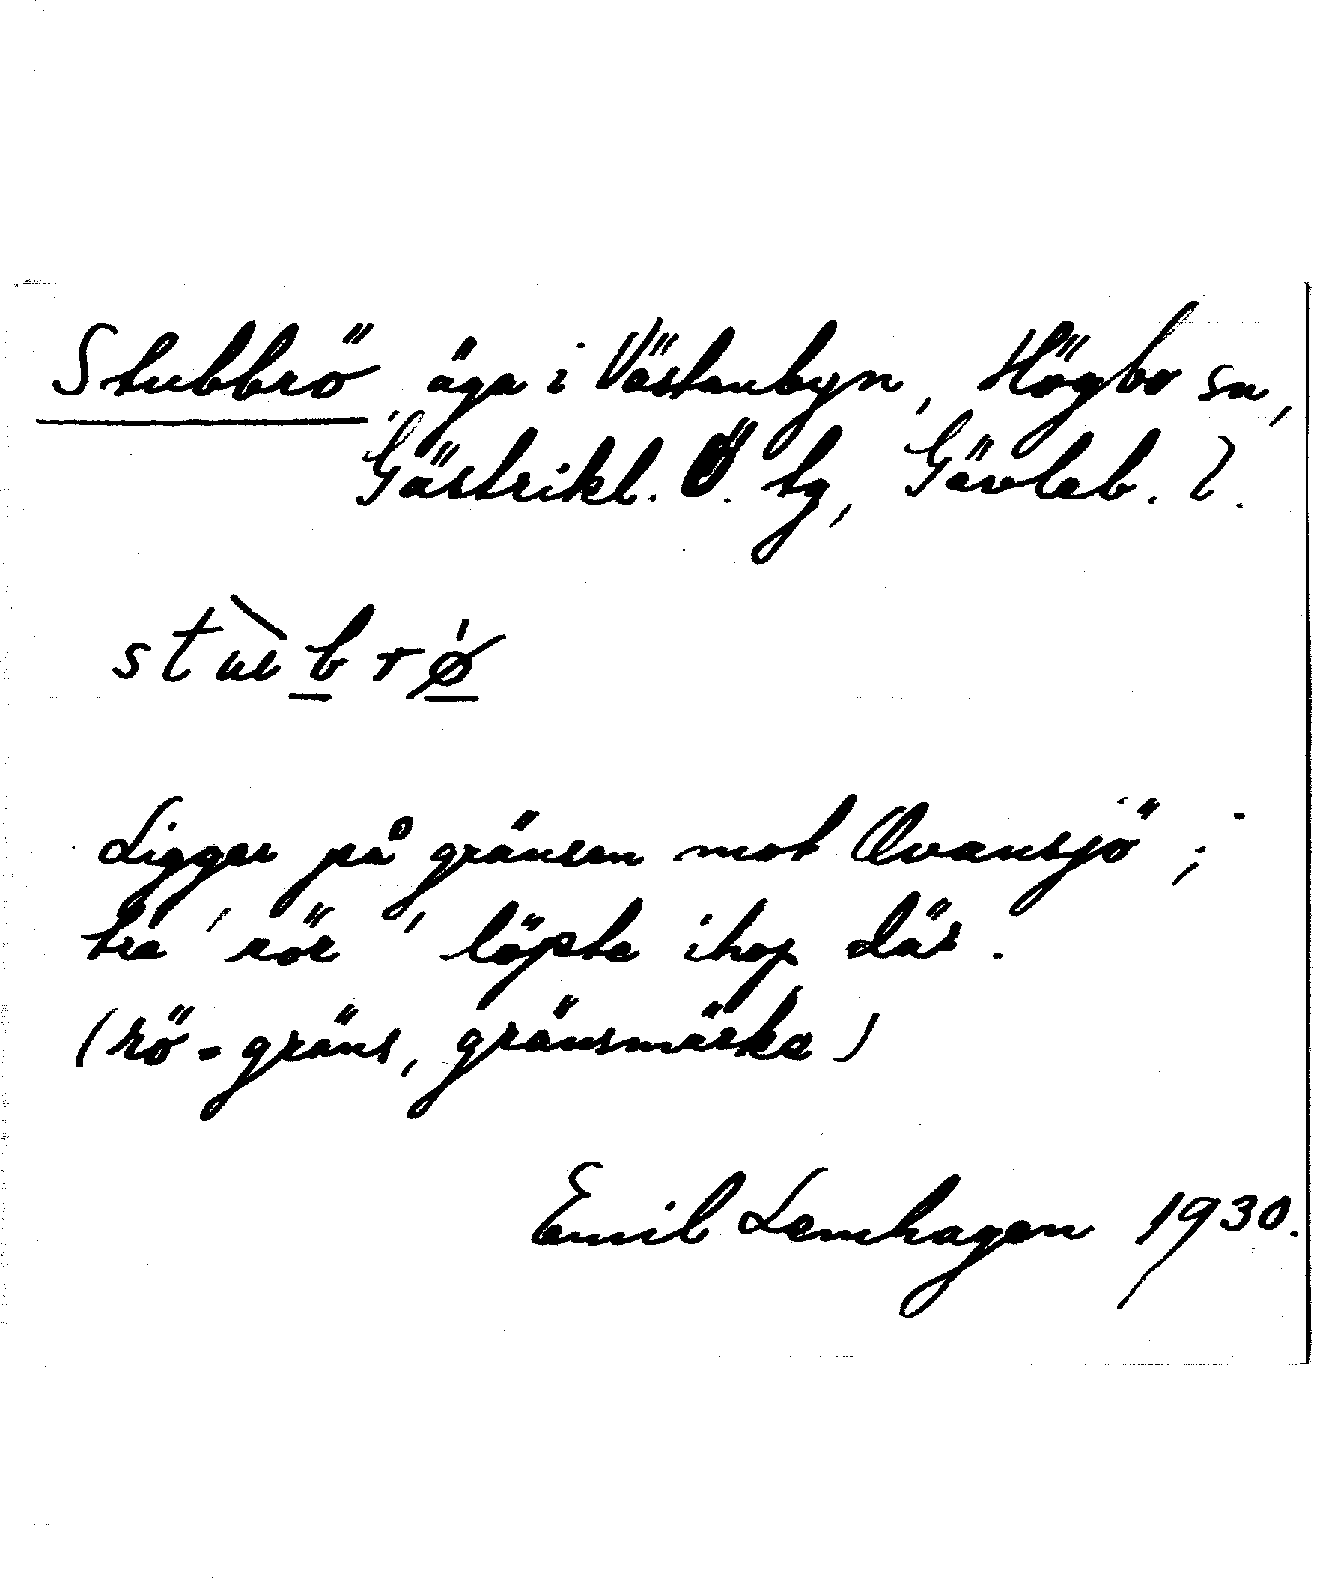 Stubbrö, äga i Västanbyn, Högbo sn,
Gästrikl. Ö. tg, Gävleb. l.
Ligger på gränsen mot Ovansjö;
tre 'rör' löpte ihop där.
(rö = gräns, gränsmärke)
Emil Lemhagen 1930.